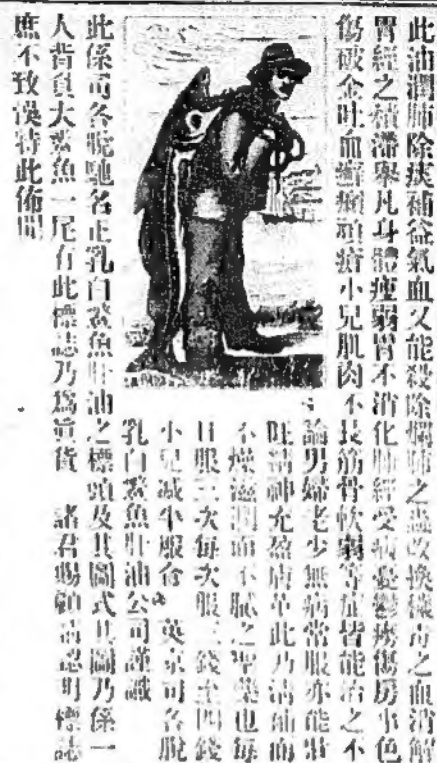 此油潤肺除痰補益氣血又能殺除爛肺之蟲改換穢毒之血消解
胃經之積滯舉凡身體瘦弱胃不消化肺經受病憂鬱癆傷房事色
傷破金吐血癬癩頑瘡小兒肌肉不長筋骨軟弱等症皆能治之不
論男婦老少無病常服亦能壯
旺精神充盈膚革此乃清油而
不燥滋潤而不膩之聖藥也每
日服三次每次服三錢至四錢
小兒減半服食 英京司各脫
乳白鰵魚肝油公司謹識
此係司各脫馳名正乳白鰵魚肝油之標頭及其圖式其圖乃係一
人背負大鰵魚一尾有此標誌乃為眞貨 諸君賜顧請認明標誌
庶不致悞特此佈聞